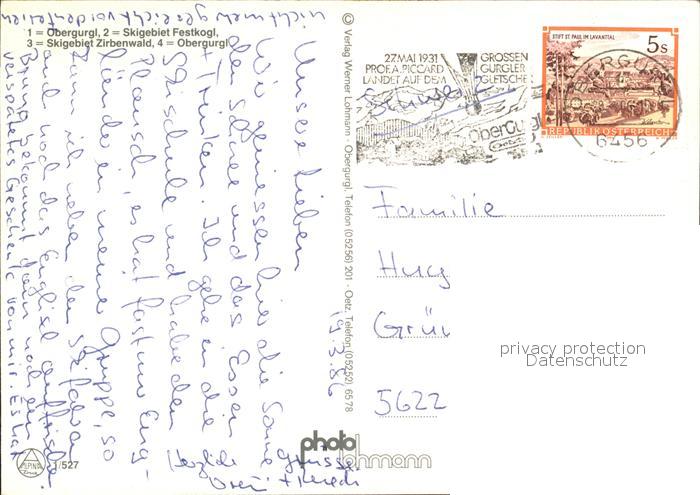 1 = Obergurgl, 2 = Skigebiet Festkogl,
3 = Skigebiet Zirbenwald, 4 = Obergurgl
© Verlag Werner Lohmann · Obergurgl, Telefon (05256) 201 · Oetz, Telefon (05252) 6578
19.3.86
Unsere Lieben
Wir geniessen hier die Sonne
den Schnee und das Essen
+ Trinken. Ich gehe in die
Skischule und habe den
Plausch, es hat fast nur Eng-
länder in meine Gruppe, so
kann ich neben dem Skifahren
auch noch das Englisch auffrischen.
verspätetes Geschenk von mir. Es hat
nicht mehr gereicht vor den Ferien
Herzliche Grüsse
27. MAI 1931
PROF. A. PICCARD
LANDET AUF DEM
GROSSEN
GURGLER
GLETSCHER
Obergurgl
STIFT ST. PAUL IM LAVANTTAL
5 s
REPUBLIK ÖSTERREICH
6456
Familie
Hug
Grü
5622
privacy protection
Datenschutz
ALPINA
1/527
photo
lohmann